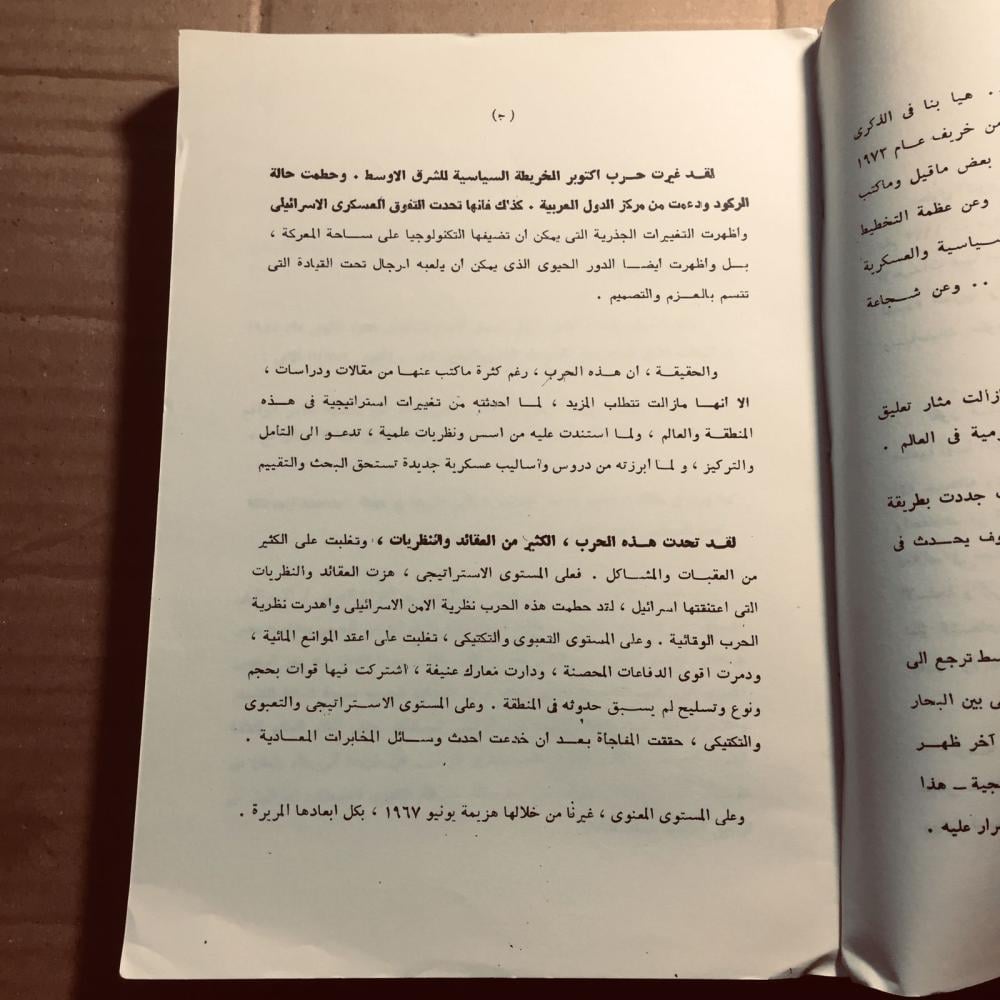 (ج)
لقد غيرت حرب اكتوبر الخريطة السياسية للشرق الاوسط . وحطمت حالة
الركود ودعمت من مركز الدول العربية . كذلك فانها تحدت التفوق العسكرى الاسرائيلى
واظهرت التغييرات الجذرية التى يمكن ان تضيفها التكنولوجيا على ساحة المعركة ،
بل واظهرت ايضا الدور الحيوى الذى يمكن أن يلعبه الرجال تحت القيادة التى
تتسم بالعزم والتصميم .
والحقيقة ، ان هذه الحرب ، رغم كثرة ماكتب عنها من مقالات ودراسات ،
الا انها مازالت تتطلب المزيد ، لما احدثته من تغييرات استراتيجية فى هذه
المنطقة والعالم ، ولما استندت عليه من اسس ونظريات علمية ، تدعو الى التأمل
والتركيز ، و لما أبرزته من دروس واساليب عسكرية جديدة تستحق البحث والتقييم
لقد تحدت هذه الحرب ، الكثير من العقائد والنظريات ، وتغلبت على الكثير
من العقبات والمشاكل . فعلى المستوى الاستراتيجى ، هزت العقائد والنظريات
التى اعتنقتها اسرائيل ، لقد حطمت هذه الحرب نظرية الامن الاسرائيلى واهدرت نظرية
الحرب الوقائية . وعلى المستوى التعبوى والتكتيكى ، تغلبت على اعقد الموانع المائية ،
ودمرت اقوى الدفاعات المحصنة ، ودارت معارك عنيفة ، اشتركت فيها قوات بحجم
ونوع وتسليح لم يسبق حدوثه فى المنطقة . وعلى المستوى الاستراتيجى والتعبوى
والتكتيكى ، حققت المفاجأة بعد ان خدعت احدث وسائل المخابرات المعادية .
وعلى المستوى المعنوى ، غيرنا من خلالها هزيمة يونيو ١٩٦٧ ، بكل ابعادها المريرة .
. هيا بنا فى الذكرى
من خريف عام ١٩٧٣
بعض ماقيل وماكتب
وعن عظمة التخطيط
سياسية والعسكرية
. . وعن شجاعة
زالت مثار تعليق
فى العالم .
جددت بطريقة
يحدث فى
ترجع الى
بين البحار
آخر ظهر
هذا
عليه .